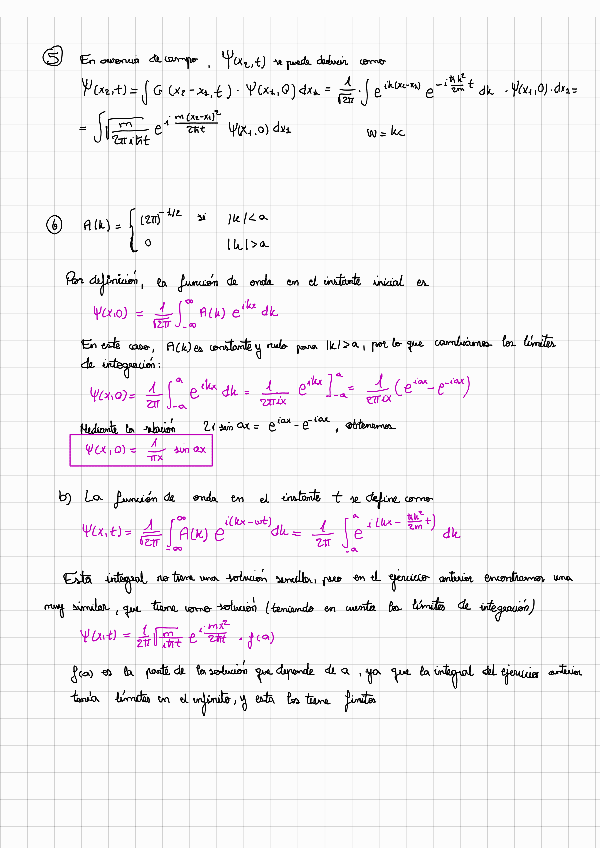 5 En ausencia de campo, Ψ(x₂,t) se puede deducir como
Ψ(x₂,t) = ∫ G(x₂-x₁,t) · Ψ(x₁,0) dx₁ = 1/√2π · ∫ e^{ik(x₂-x₁)} e^{-i ħk²/2m t} dk · Ψ(x₁,0) · dx₁ =
= ∫ √(m/2πiħt) e^{i m(x₂-x₁)²/2ħt} Ψ(x₁,0) dx₁ w = kc
6 A(k) = { (2π)^{-1/2} si |k| < a
0 |k| > a
Por definición, la función de onda en el instante inicial es
Ψ(x,0) = 1/√2π ∫_{-∞}^{∞} A(k) e^{ikx} dk
En este caso, A(k) es constante y nulo para |k| > a, por lo que cambiamos los límites
de integración:
Ψ(x,0) = 1/2π ∫_{-a}^{a} e^{ikx} dk = 1/2πix e^{ikx} ]_{-a}^{a} = 1/2πix (e^{iax} - e^{-iax})
Mediante la relación 2i sin ax = e^{iax} - e^{-iax}, obtenemos
Ψ(x,0) = 1/πx sin ax
b) La función de onda en el instante t se define como
Ψ(x,t) = 1/√2π ∫_{-∞}^{∞} A(k) e^{i(kx-wt)} dk = 1/2π ∫_{-a}^{a} e^{i(kx - ħk²/2m t)} dk
Esta integral no tiene una solución sencilla, pero en el ejercicio anterior encontramos una
muy similar, que tiene como solución (teniendo en cuenta los límites de integración)
Ψ(x,t) = 1/2π √(m/iħt) e^{i mx²/2ħt} · f(a)
f(a) es la parte de la solución que depende de a, ya que la integral del ejercicio anterior
tenía límites en el infinito, y esta los tiene finitos